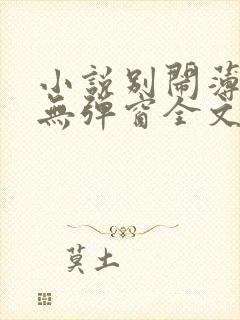 小説別鬧薄
無彈窗全文
莫土